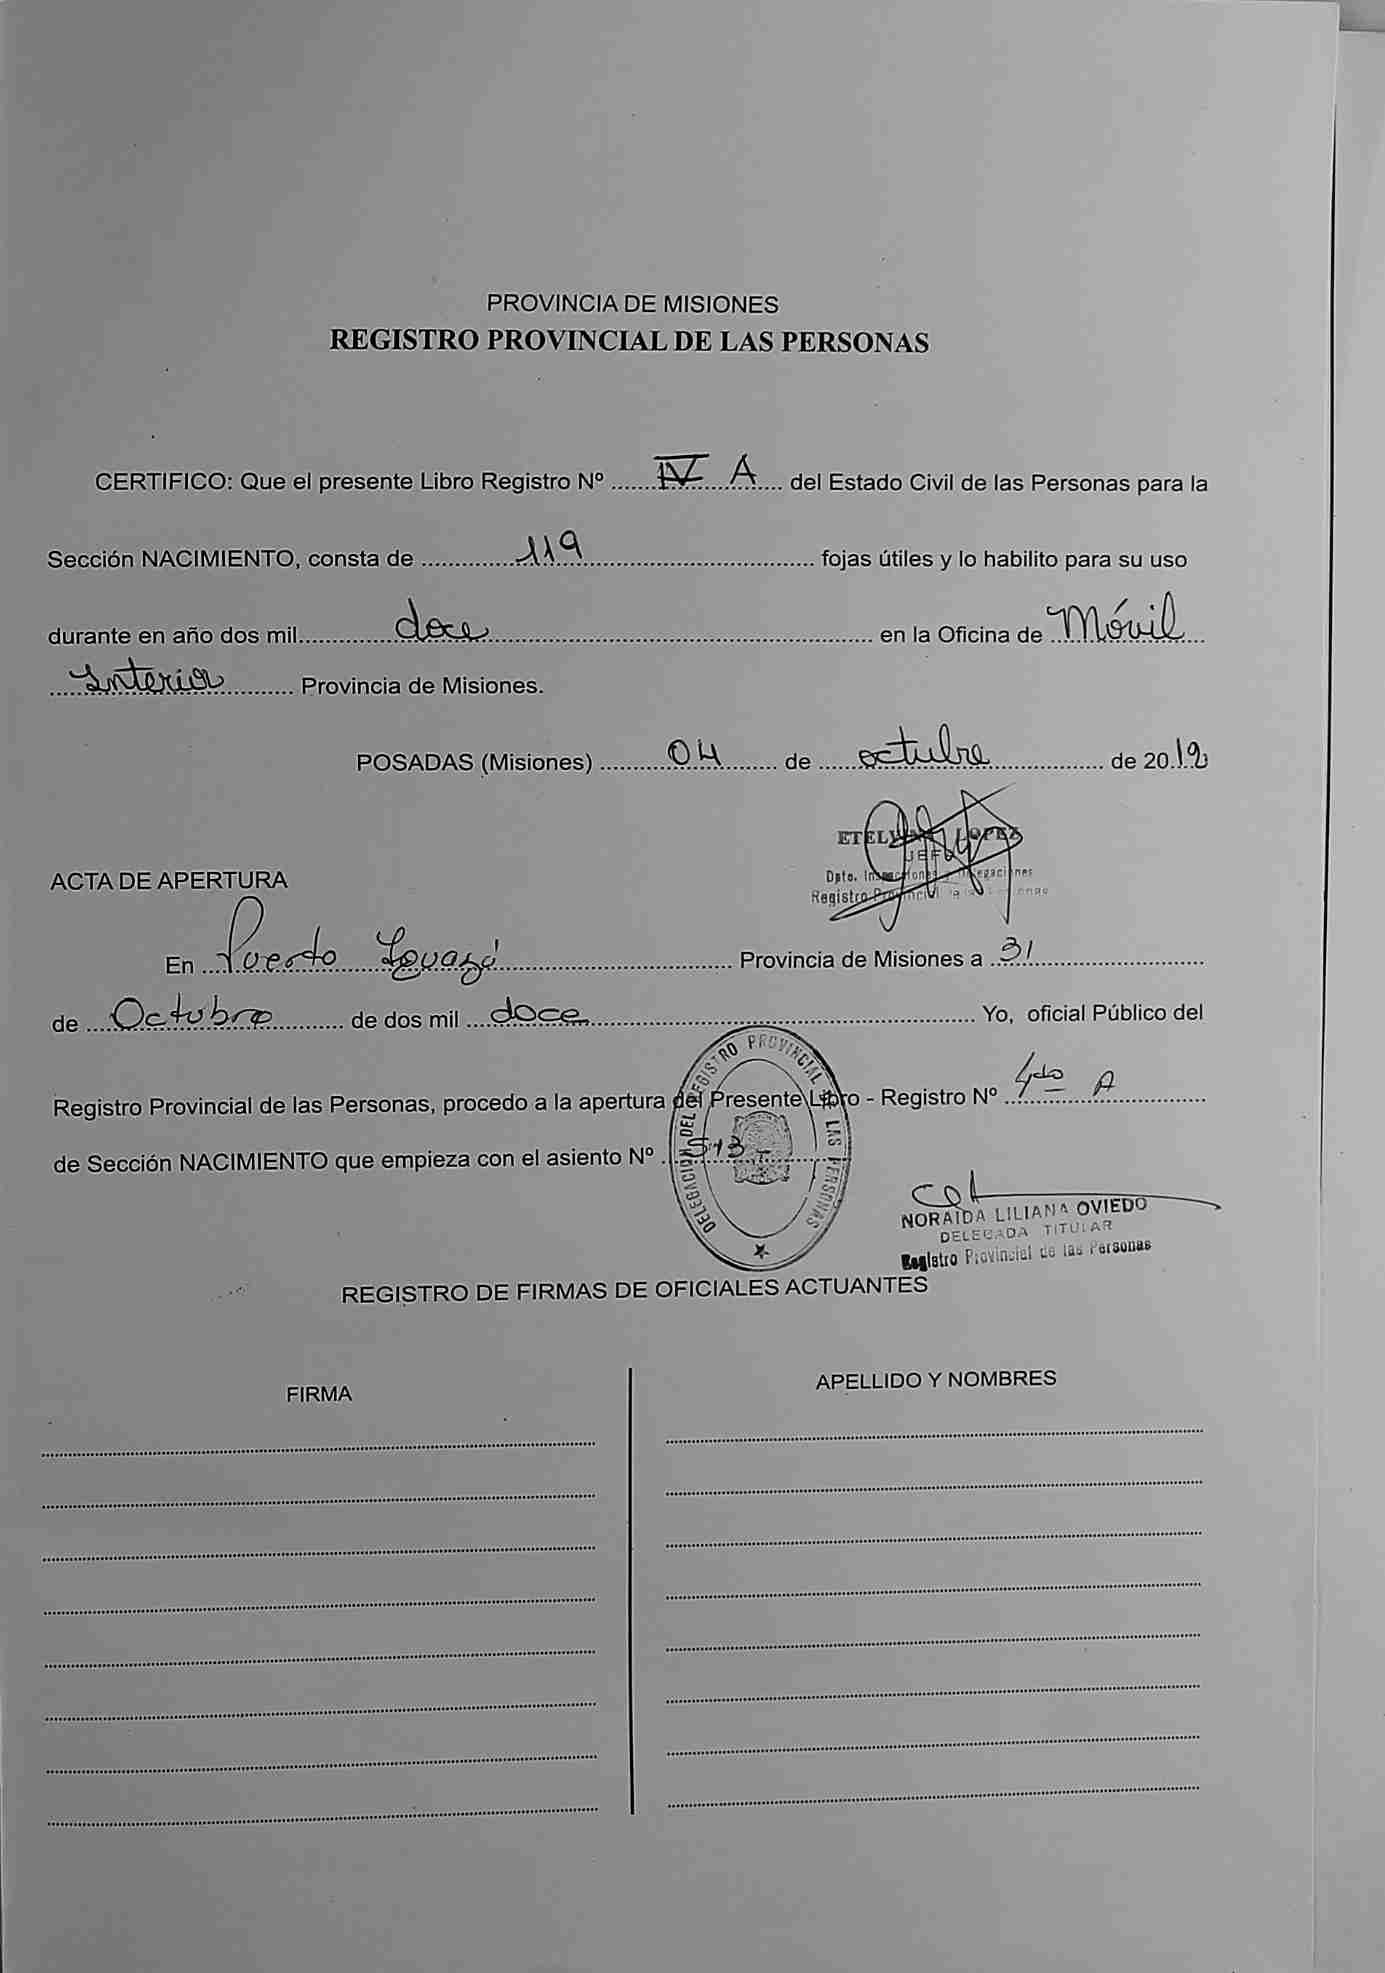 PROVINCIA DE MISIONES
REGISTRO PROVINCIAL DE LAS PERSONAS
CERTIFICO: Que el presente Libro Registro Nº IV A del Estado Civil de las Personas para la
Sección NACIMIENTO, consta de 119 fojas útiles y lo habilito para su uso
durante en año dos mil doce en la Oficina de Móvil
Interior Provincia de Misiones.
POSADAS (Misiones) 04 de octubre de 2012
LOPEZ
JEFE
Dpto.
Registro Provincial
ACTA DE APERTURA
En Puerto Iguazú Provincia de Misiones a 31
de Octubre de dos mil doce Yo, oficial Público del
Registro Provincial de las Personas, procedo a la apertura del Presente Libro - Registro Nº 4do A
de Sección NACIMIENTO que empieza con el asiento Nº 513
DELEGACION DEL REGISTRO PROVINCIAL DE LAS PERSONAS
NORAIDA LILIANA OVIEDO
DELEGADA TITULAR
Registro Provincial de las Personas
REGISTRO DE FIRMAS DE OFICIALES ACTUANTES
FIRMA APELLIDO Y NOMBRES